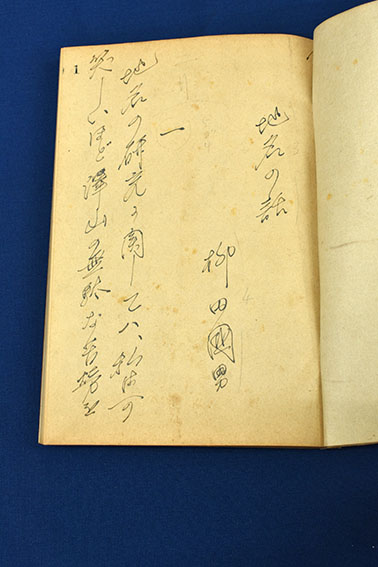 地名の話
柳田國男
一
地名の研究に関しては、私は可
笑しいほど澤山の無駄な苦労を
1